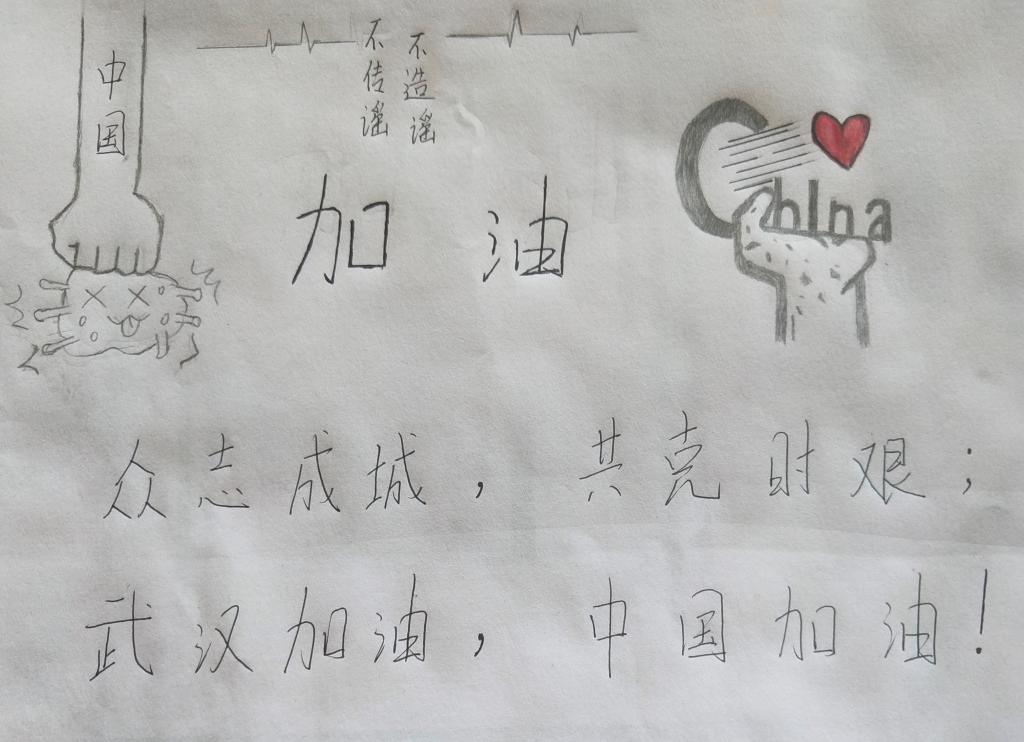 中国
不传谣
不造谣
加油
China
众志成城，共克时艰；
武汉加油，中国加油！